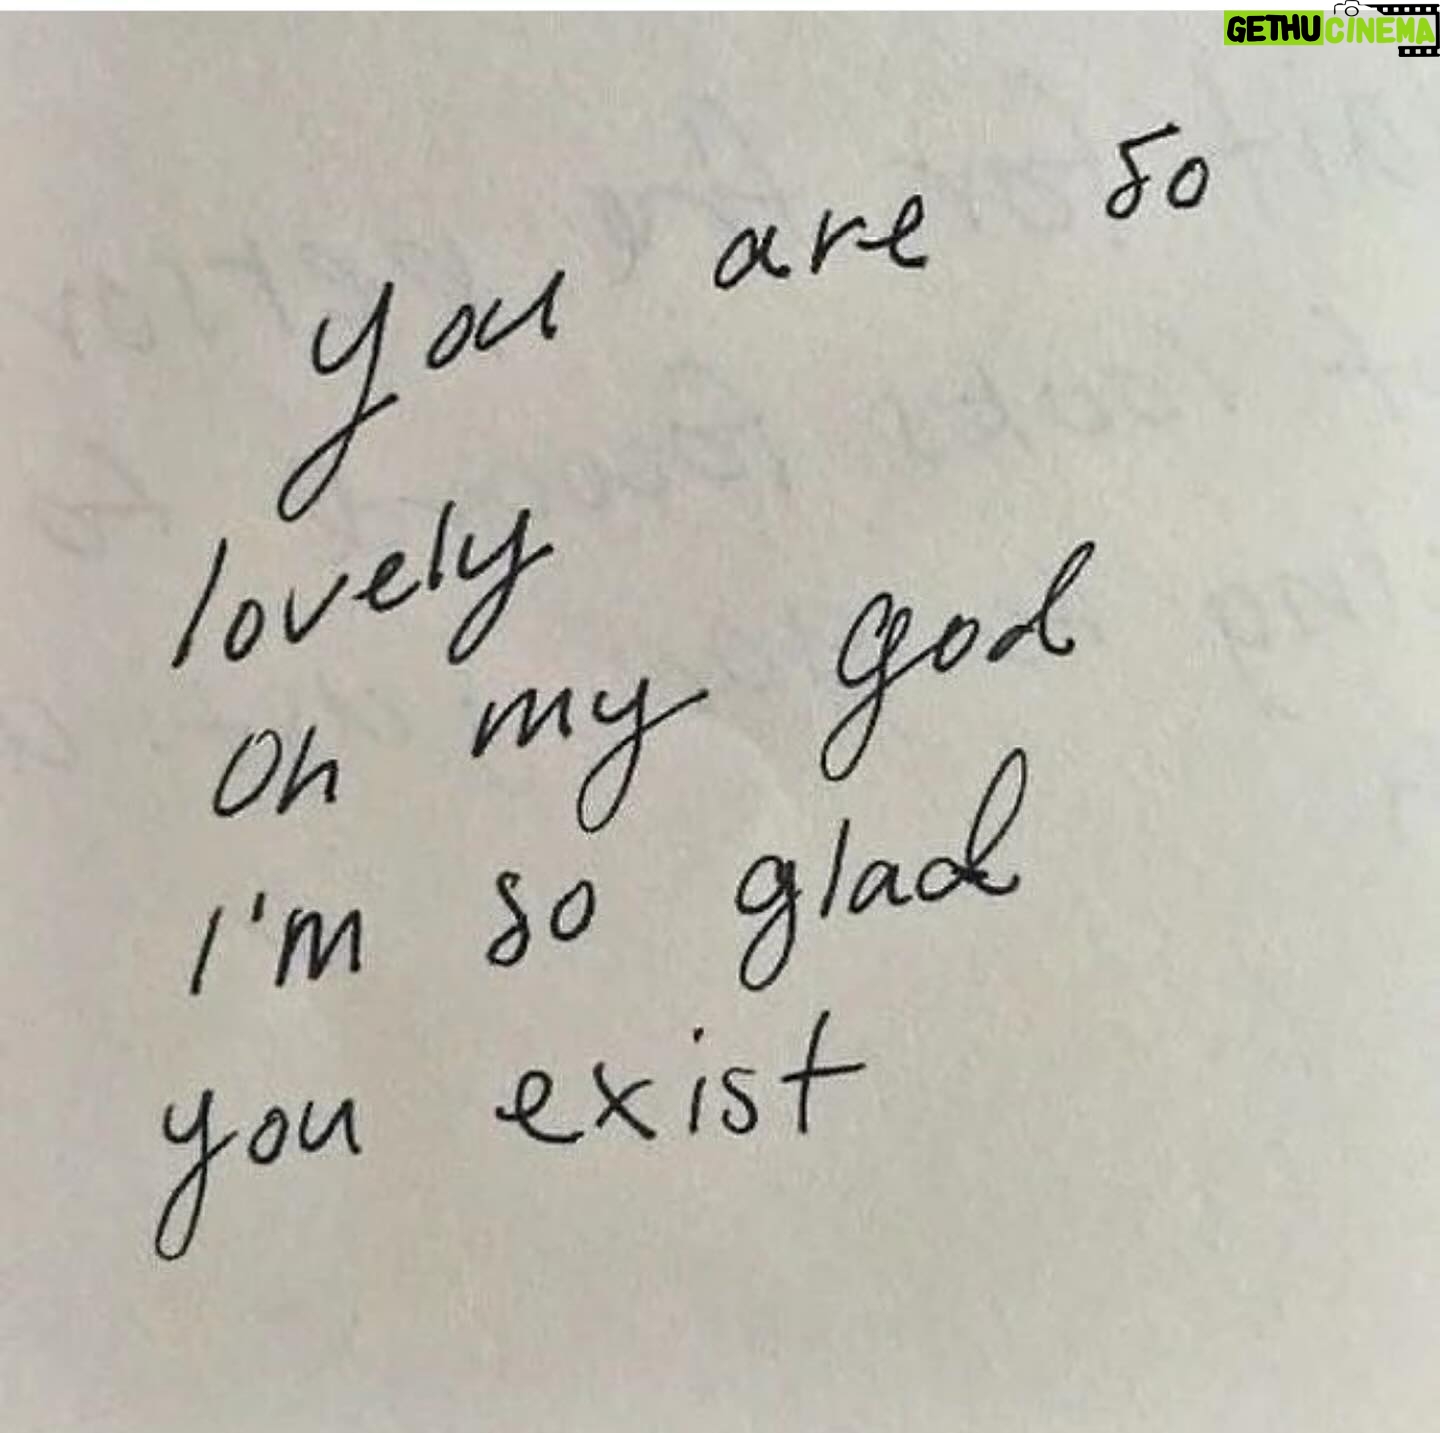 GETHUCINEMA
you are so
lovely
Oh my god
I'm so glad
you exist